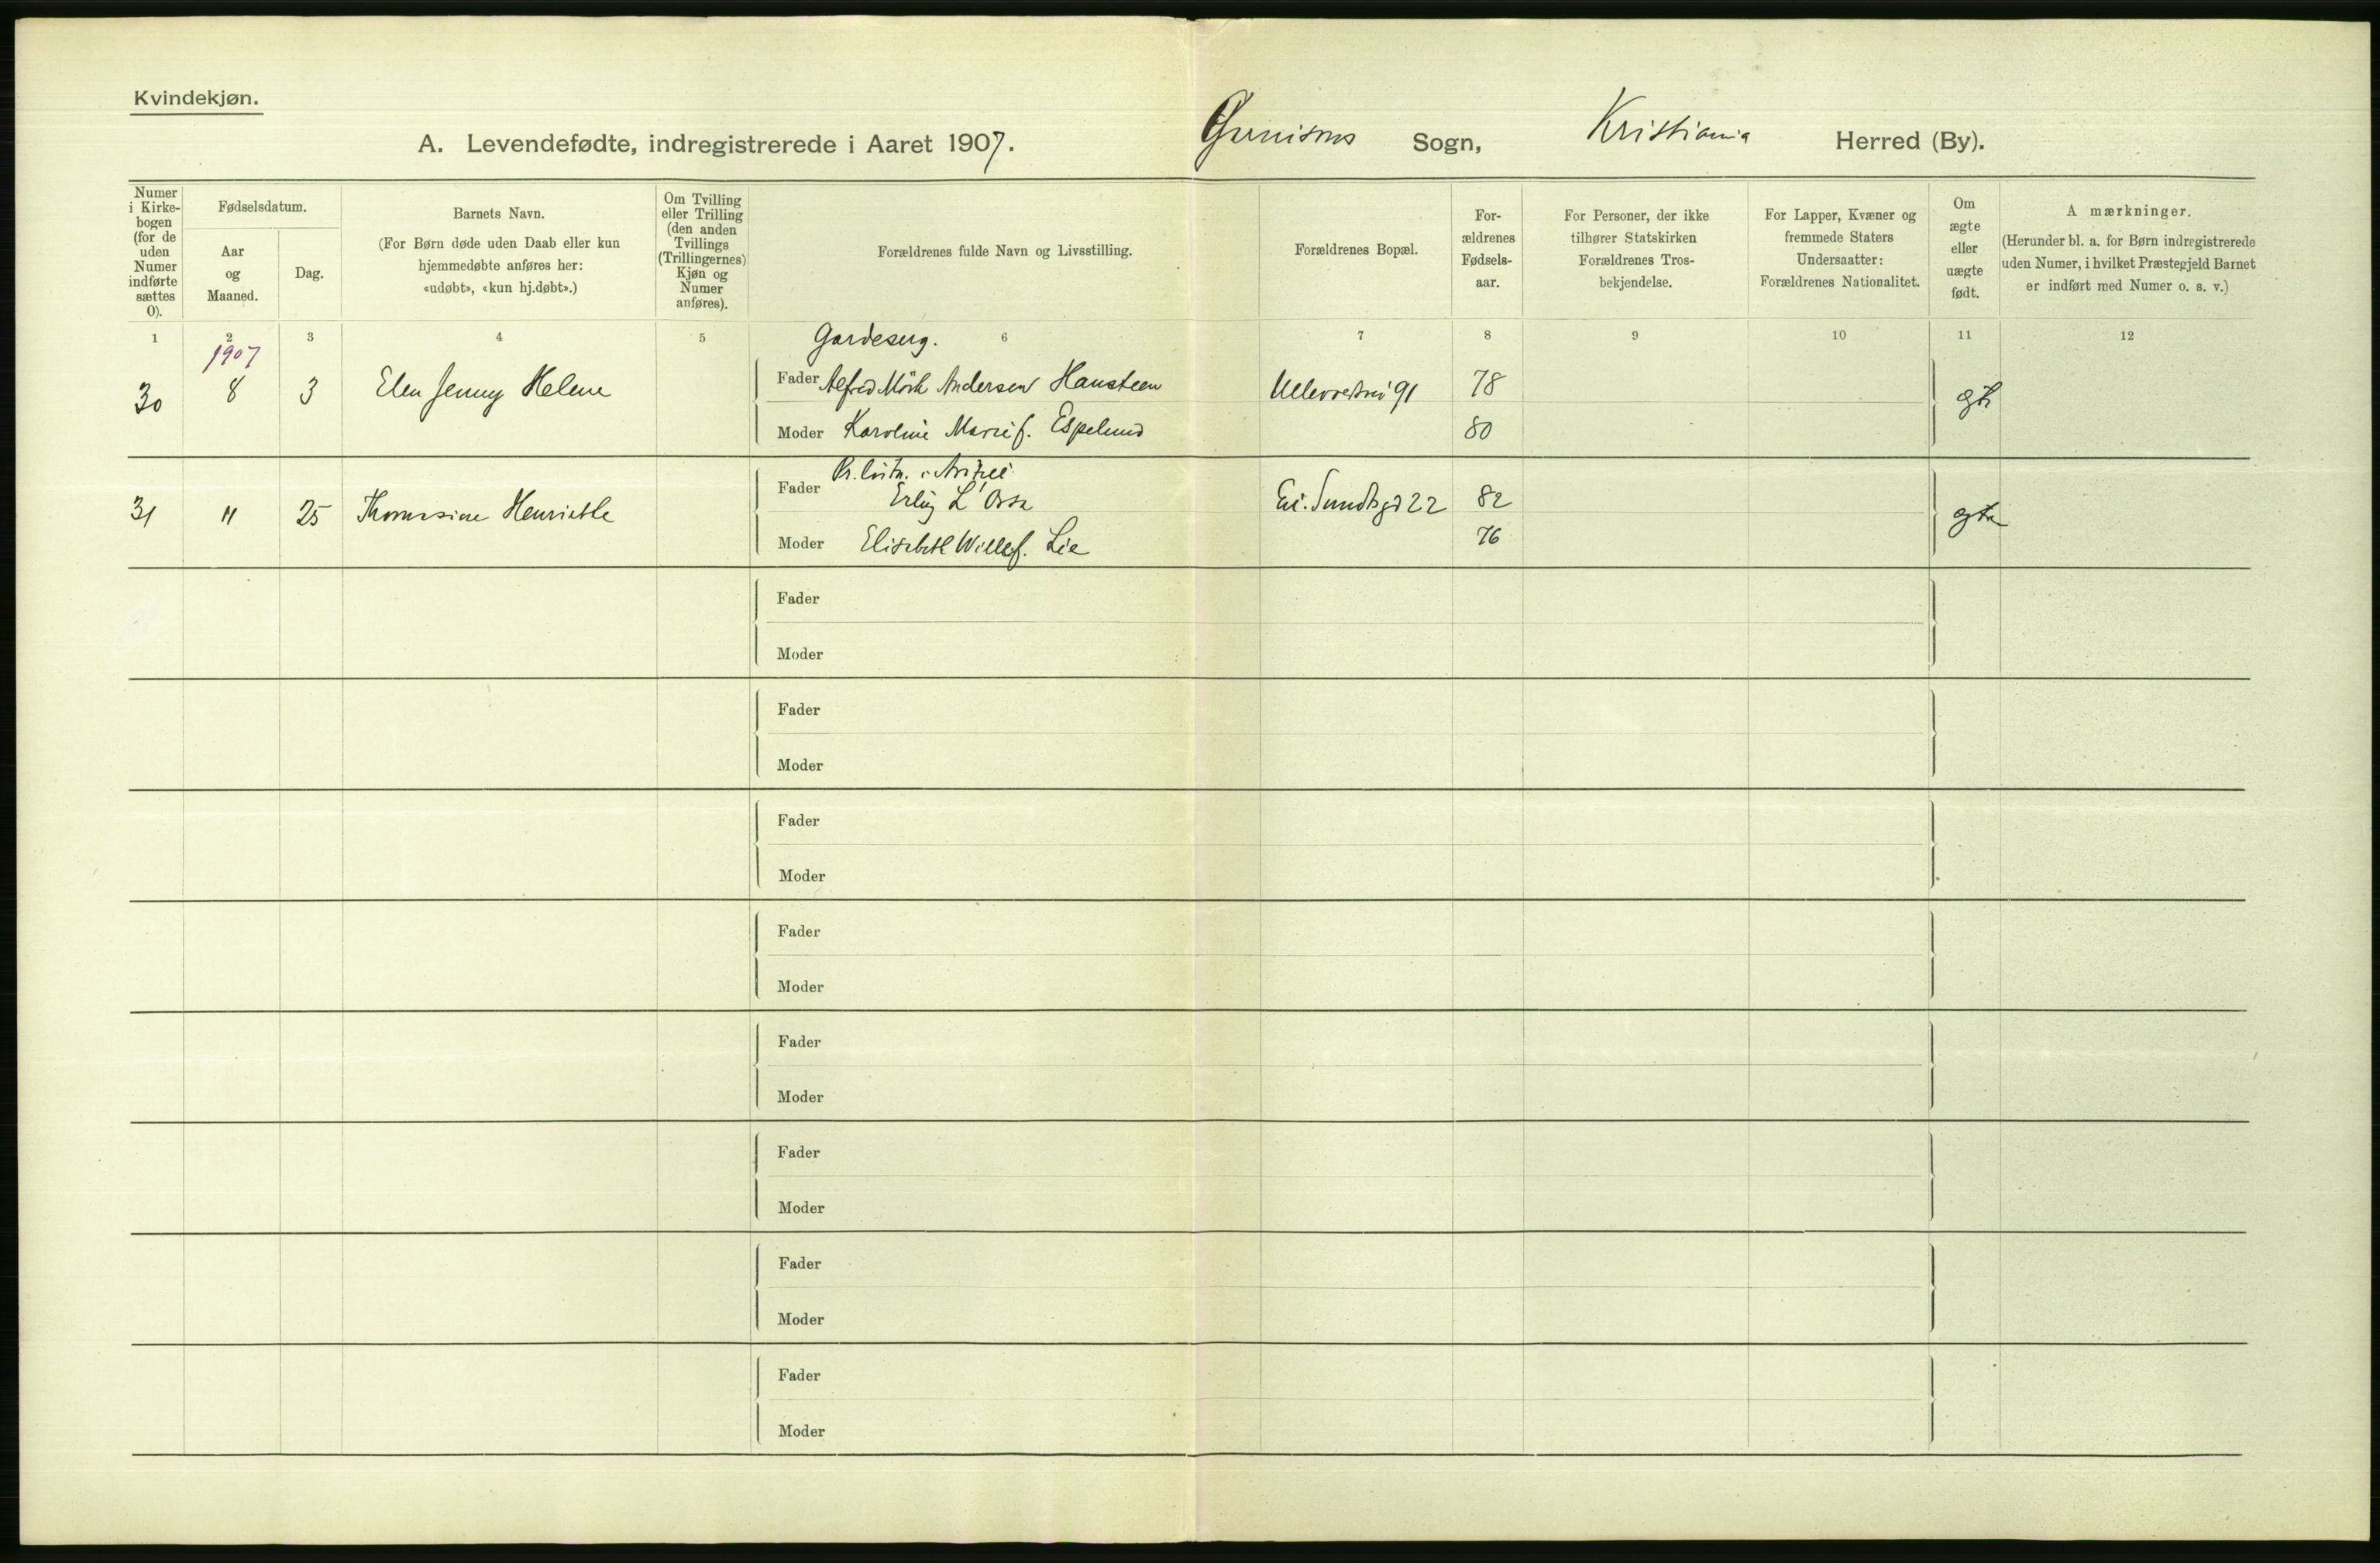 Kvindekjøn.
A. Levendefødte, indregistrerede i Aaret 1907.
Sogn, Kristiania Herred (By).
Numer i Kirke-bogen (for de uden Numer indførte sættes 0).
Fødselsdatum.
Aar og Maaned.
Dag.
Barnets Navn.
(For Børn døde uden Daab eller kun
hjemmedøbte anføres her:
«udøbt», «kun hj.døbt».)
Om Tvilling
eller Trilling
(den anden
Tvillings
(Trillingernes)
Kjøn og
Numer
anføres).
Forældrenes fulde Navn og Livsstilling.
Forældrenes Bopæl.
For-
ældrenes
Fødsels-
aar.
For Personer, der ikke
tilhører Statskirken
Forældrenes Tros-
bekjendelse.
For Lapper, Kvæner og
fremmede Staters
Undersaatter:
Forældrenes Nationalitet.
Om
ægte
eller
uægte
født.
A mærkninger.
(Herunder bl. a. for Børn indregistrerede
uden Numer, i hvilket Præstegjeld Barnet
er indført med Numer o. s. v.)
1 2 3 4 5 6 7 8 9 10 11 12
1907
30 8 3 Elen Jenny Helene Fader Alfred Mörk Andersen Hansteen 91 78 gt
Moder Karoline Marie f. Espelund 80
31 " 25 Thomasine Henriette
Fader Erling L'Orsa Ei. Sundtsgd 22 82 gte
Moder Elisabeth Wille f. Lie 76
Fader
Moder
Fader
Moder
Fader
Moder
Fader
Moder
Fader
Moder
Fader
Moder
Fader
Moder
Fader
Moder